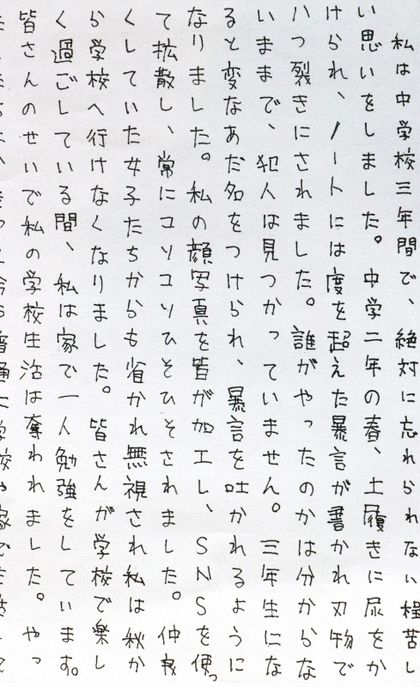 私は中学校三年間で、絶対に忘れられない程苦し
い思いをしました。中学二年の春、上履きに尿をか
けられ、ノートには度を超えた暴言が書かれ刃物で
八つ裂きにされました。誰がやったのかは分からな
いままで、犯人は見つかっていません。三年生にな
ると変なあだ名をつけられ、暴言を吐かれるように
なりました。私の顔写真を皆が加工し、SNSを使っ
て拡散し、常にコソコソひそひそされました。仲良
くしていた女子たちからも省かれ無視され私は秋か
ら学校へ行けなくなりました。皆さんが学校で楽し
く過ごしている間、私は家で一人勉強をしています。
皆さんのせいで私の学校生活は奪われました。やっ